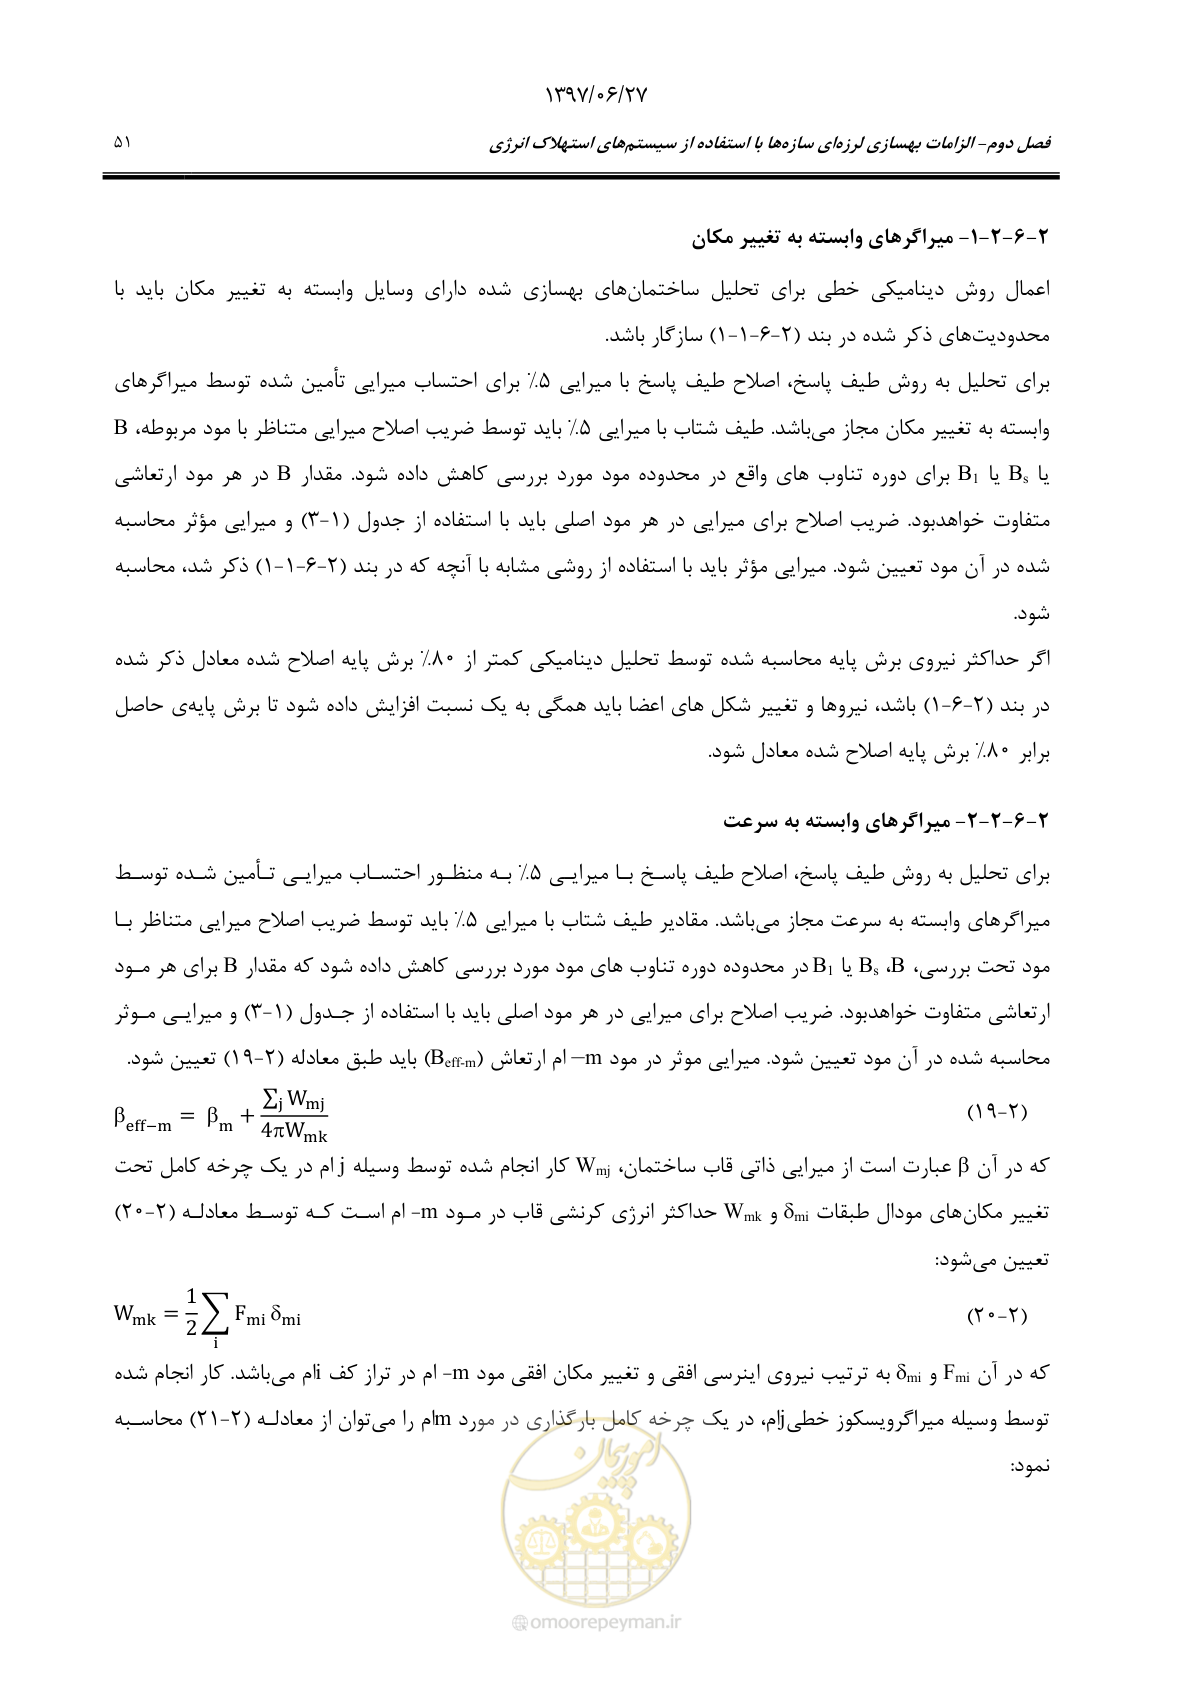 ۱۳۹۷/۰۶/۲۷
فصل دوم- الزامات بهسازی لرزه‌ای سازه‌ها با استفاده از سیستم‌های استهلاک انرژی ۵۱
۲-۶-۲-۱- میراگرهای وابسته به تغییر مکان
اعمال روش دینامیکی خطی برای تحلیل ساختمان‌های بهسازی شده دارای وسایل وابسته به تغییر مکان باید با
محدودیت‌های ذکر شده در بند (۲-۶-۱-۱) سازگار باشد.
برای تحلیل به روش طیف پاسخ، اصلاح طیف پاسخ با میرایی ۵٪ برای احتساب میرایی تأمین شده توسط میراگرهای
وابسته به تغییر مکان مجاز می‌باشد. طیف شتاب با میرایی ۵٪ باید توسط ضریب اصلاح میرایی متناظر با مود مربوطه، B
یا Bs یا B1 برای دوره تناوب های واقع در محدوده مود مورد بررسی کاهش داده شود. مقدار B در هر مود ارتعاشی
متفاوت خواهدبود. ضریب اصلاح برای میرایی در هر مود اصلی باید با استفاده از جدول (۱-۳) و میرایی مؤثر محاسبه
شده در آن مود تعیین شود. میرایی مؤثر باید با استفاده از روشی مشابه با آنچه که در بند (۲-۶-۱-۱) ذکر شد، محاسبه
شود.
اگر حداکثر نیروی برش پایه محاسبه شده توسط تحلیل دینامیکی کمتر از ۸۰٪ برش پایه اصلاح شده معادل ذکر شده
در بند (۲-۶-۱) باشد، نیروها و تغییر شکل های اعضا باید همگی به یک نسبت افزایش داده شود تا برش پایه‌ی حاصل
برابر ۸۰٪ برش پایه اصلاح شده معادل شود.
۲-۶-۲-۲- میراگرهای وابسته به سرعت
برای تحلیل به روش طیف پاسخ، اصلاح طیف پاسخ با میرایی ۵٪ به منظور احتساب میرایی تأمین شده توسط
میراگرهای وابسته به سرعت مجاز می‌باشد. مقادیر طیف شتاب با میرایی ۵٪ باید توسط ضریب اصلاح میرایی متناظر با
مود تحت بررسی، B، Bs یا B1 در محدوده دوره تناوب های مود مورد بررسی کاهش داده شود که مقدار B برای هر مود
ارتعاشی متفاوت خواهدبود. ضریب اصلاح برای میرایی در هر مود اصلی باید با استفاده از جدول (۱-۳) و میرایی موثر
محاسبه شده در آن مود تعیین شود. میرایی موثر در مود m– ام ارتعاش (Beff-m) باید طبق معادله (۲-۱۹) تعیین شود.
(۲-۱۹) βeff−m = βm + ∑j Wmj / 4πWmk
که در آن β عبارت است از میرایی ذاتی قاب ساختمان، Wmj کار انجام شده توسط وسیله j ام در یک چرخه کامل تحت
تغییر مکان‌های مودال طبقات δmi و Wmk حداکثر انرژی کرنشی قاب در مود m- ام است که توسط معادله (۲-۲۰)
تعیین می‌شود:
(۲-۲۰) Wmk = 1/2 ∑i Fmi δmi
که در آن Fmi و δmi به ترتیب نیروی اینرسی افقی و تغییر مکان افقی مود m- ام در تراز کف iام می‌باشد. کار انجام شده
توسط وسیله میراگرویسکوز خطیjام، در یک چرخه کامل بارگذاری در مورد mام را می‌توان از معادله (۲-۲۱) محاسبه
نمود:
امورپیمان
omoorepeyman.ir